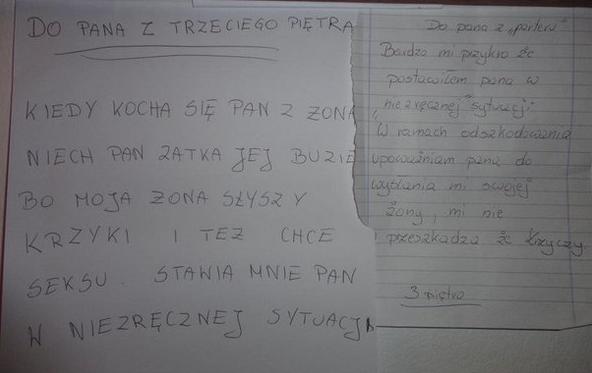 DO PANA Z TRZECIEGO PIĘTRA
KIEDY KOCHA SIĘ PAN Z ZONA
NIECH PAN ZATKA JEJ BUZIE
BO MOJA ZONA SŁYSZY
KRZYKI I TEZ CHCE
SEKSU. STAWIA MNIE PAN
W NIEZRĘCZNEJ SYTUACJI
Do pana z „parteru"
Bardzo mi przykro że
postawiłem pana w
„niezręcznej" sytuacji.
W ramach odszkodowania
upoważniam pana do
wysłania mi swojej
żony, mi nie
przeszkadza że krzyczy.
3 piętro